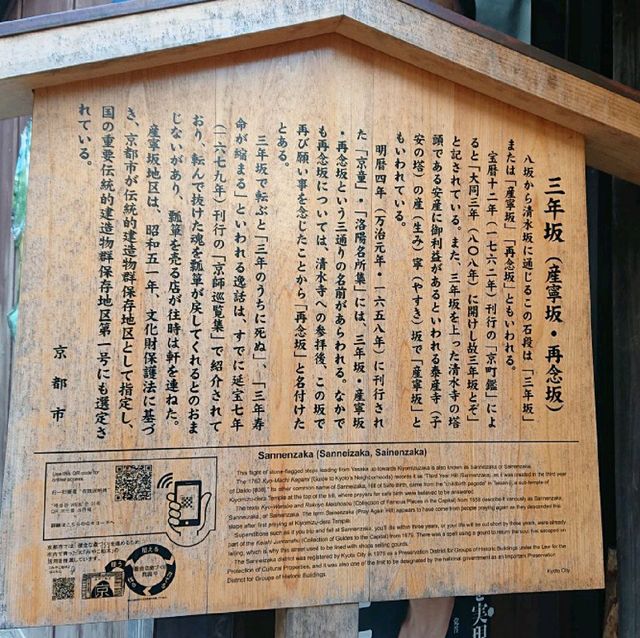 三年坂（産寧坂・再念坂）
八坂から清水坂に通じるこの石段は「三年坂」
または「産寧坂」「再念坂」ともいわれる。
宝暦十二年（一七六二年）刊行の「京町鑑」によ
ると「大同三年（八〇八年）に開けし故三年坂とぞ」
と記されている。また、三年坂を上った清水寺の塔
頭である安産に御利益があるといわれる泰産寺（子
安の塔）の産（生み）寧（やすき）坂で「産寧坂」と
もいわれている。
明暦四年（万治元年・一六五八年）に刊行され
た「京童」・「洛陽名所集」には、三年坂・産寧坂
・再念坂という三通りの名前があらわれる。なかで
も再念坂については、清水寺への参拝後、この坂で
再び願い事を念じたことから「再念坂」と名付けた
とある。
三年坂で転ぶと「三年のうちに死ぬ」、「三年寿
命が縮まる」といわれる逸話は、すでに延宝七年
（一六七九年）刊行の「京師巡覧集」で紹介されて
おり、転んで抜けた魂を瓢箪が戻してくれるとのおま
じないがあり、瓢箪を売る店が往時は軒を連ねた。
産寧坂地区は、昭和五一年、文化財保護法に基づ
き、京都市が伝統的建造物群保存地区として指定し、
国の重要伝統的建造物群保存地区第一号にも選定さ
れている。
京都市
Sannenzaka (Sanneizaka, Sainenzaka)
This flight of stone-flagged steps leading from Yasaka up towards Kiyomizuzaka is also known as Sanneizaka or Sainenzaka.
The 1762 Kyo-Machi Kagami (Guide to Kyoto's Neighborhoods) records it as "Third Year Hill (Sannenzaka), as it was created in the third year
of Daido [808]." Its other common name of Sanneizaka, Hill of Safe Birth, came from the "childbirth pagoda" in Taisanji, a sub-temple of
Kiyomizu-dera Temple at the top of the hill, where prayers for safe birth were believed to be answered.
The texts Kyo-Warabe and Rakuyo Meishoshu (Collection of Famous Places in the Capital) from 1658 describe it variously as Sannenzaka,
Sanneizaka, or Sainenzaka. The term Sainenzaka (Pray Again Hill) appears to have come from people praying again as they descended this
slope after first praying at Kiyomizu-dera Temple.
Superstitions such as if you trip and fall at Sannenzaka, you'll die within three years, or your life will be cut short by three years, were already
part of the Keishi Junranshu (Collection of Guides to the Capital) from 1679. There was a spell using a gourd to return the soul that escaped on
falling, which is why this street used to be lined with shops selling gourds.
The Sanneizaka district was registered by Kyoto City in 1976 as a Preservation District for Groups of Historic Buildings under the Law for the
Protection of Cultural Properties, and it was also one of the first to be designated by the national government as an Important Preservation
District for Groups of Historic Buildings.
Kyoto City
Use this QR code for
online access.